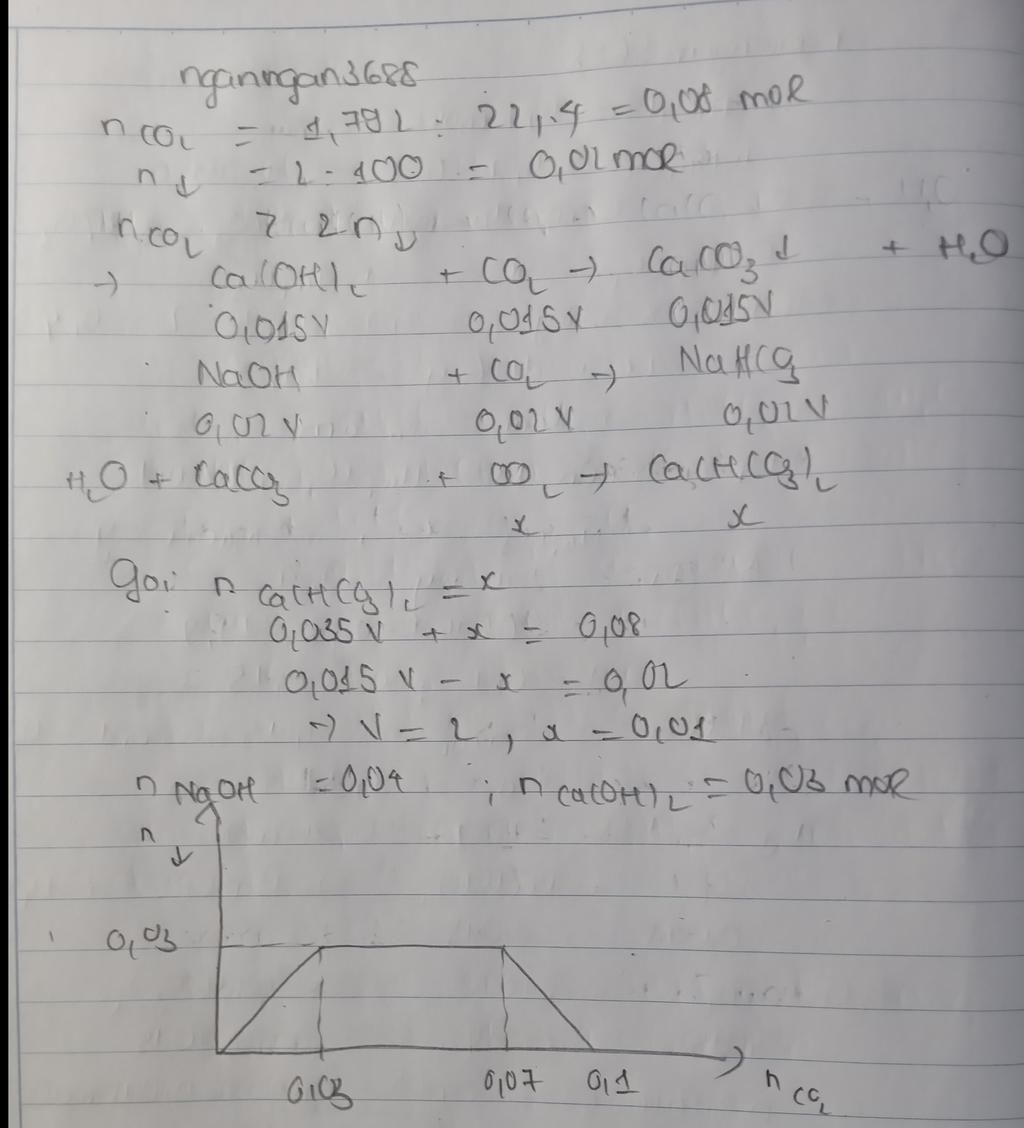 nganngan3688
nCO₂ = 1,792 : 22,4 = 0,08 mol
n↓ = 2 : 100 = 0,02 mol
nCO₂ > 2n↓
→ Ca(OH)₂ + CO₂ → CaCO₃↓ + H₂O
0,015V 0,015V 0,015V
NaOH + CO₂ → NaHCO₃
0,02V 0,02V 0,02V
H₂O + CaCO₃ + CO₂ → Ca(HCO₃)₂
x x
Gọi n Ca(HCO₃)₂ = x
0,035V + x = 0,08
0,015V - x = 0,02
→ V = 2, x = 0,01
n NaOH = 0,04 ; n Ca(OH)₂ = 0,03 mol
n↓
0,03
0,03 0,07 0,1 nCO₂